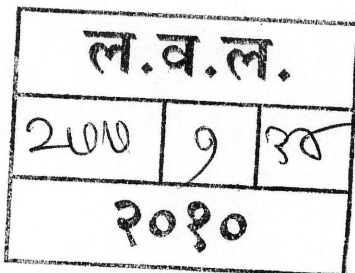 ल.व.ल.
२७७ १ ३४
२०१०